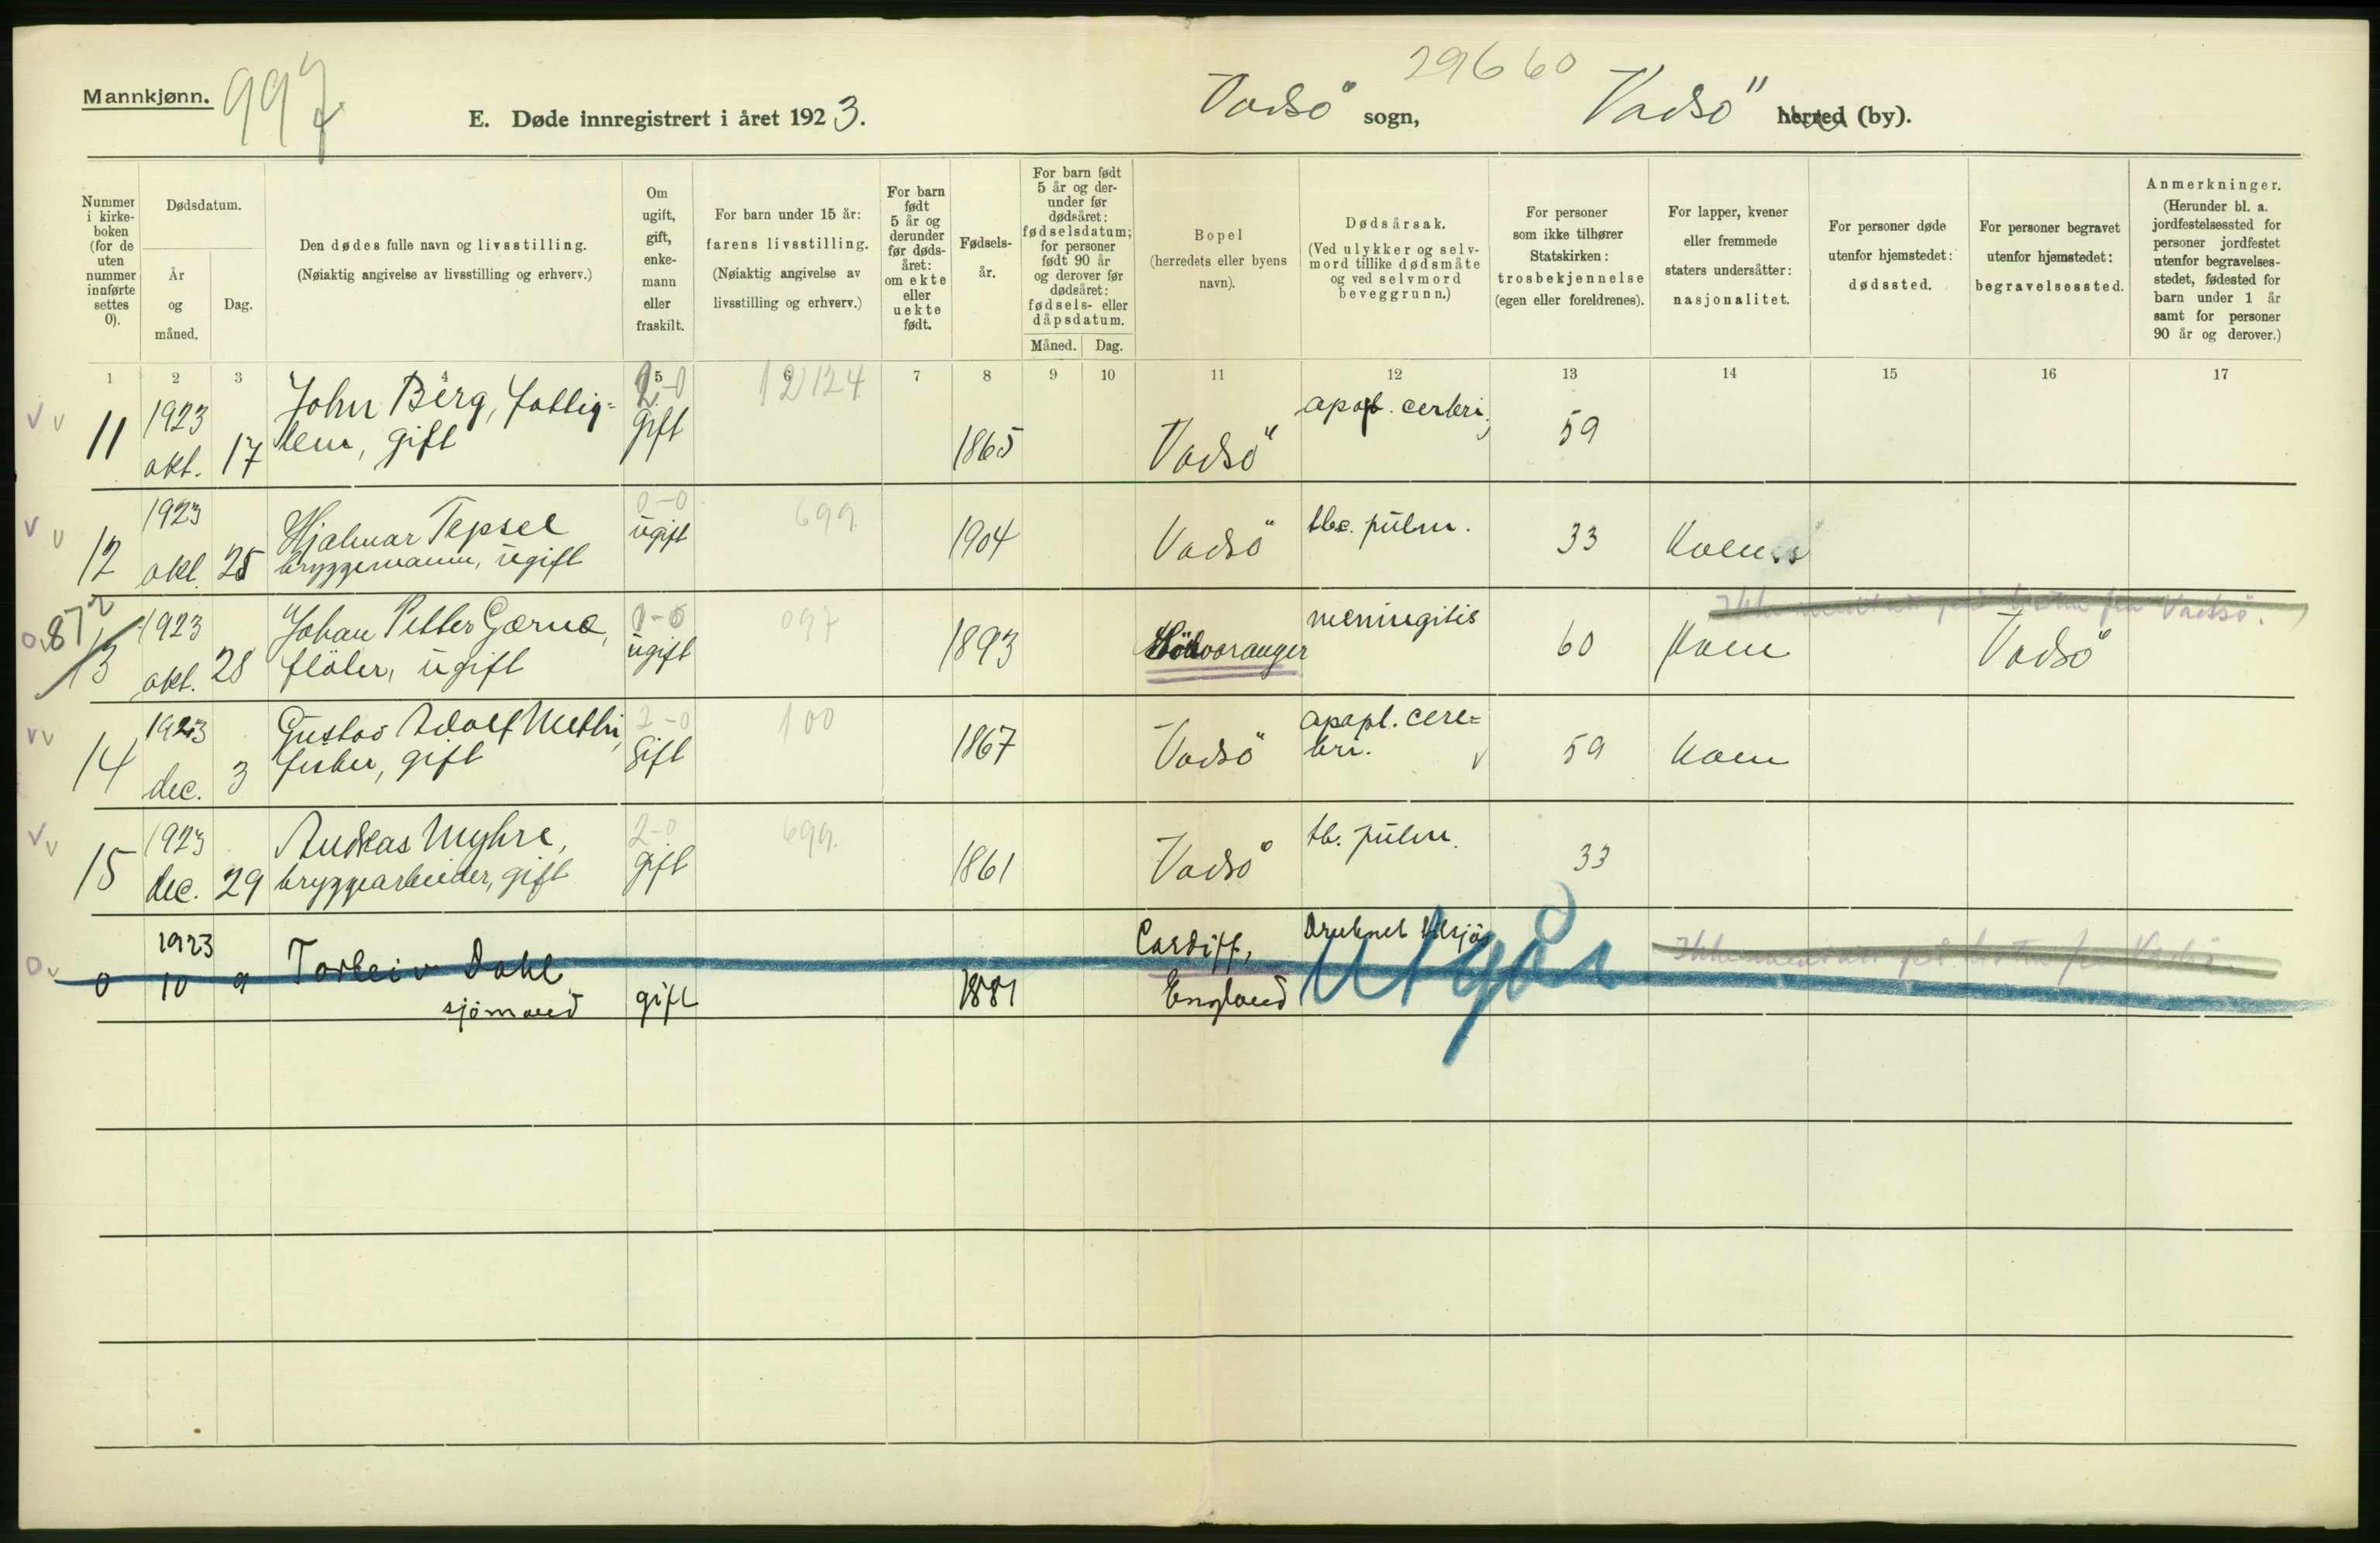 Mannkjønn. 997
29660
E. Døde innregistrert i året 1923. Vadsö sogn, Vadsö herred (by).
Nummer i kirke-boken (for de uten nummer innførte settes 0).
Dødsdatum.
År og måned.
Dag.
Den dødes fulle navn og livsstilling.
(Nøiaktig angivelse av livsstilling og erhverv.)
Om ugift, gift, enke-mann eller fraskilt.
For barn under 15 år:
farens livsstilling.
(Nøiaktig angivelse av livsstilling og erhverv.)
For barn født 5 år og derunder før døds-året: om ekte eller uekte født.
Fødsels-år.
For barn født 5 år og der-under før dødsåret: fødselsdatum; for personer født 90 år og derover før dødsåret: fødsels- eller dåpsdatum.
Måned. Dag.
Bopel
(herredets eller byens navn).
Dødsårsak.
(Ved ulykker og selv-mord tillike dødsmåte og ved selvmord beveggrunn.)
For personer som ikke tilhører Statskirken: trosbekjennelse (egen eller foreldrenes).
For lapper, kvener eller fremmede staters undersåtter: nasjonalitet.
For personer døde utenfor hjemstedet: dødssted.
For personer begravet utenfor hjemstedet: begravelsessted.
Anmerkninger.
(Herunder bl. a. jordfestelsessted for personer jordfestet utenfor begravelses-stedet, fødested for barn under 1 år samt for personer 90 år og derover.)
1 2 3 4 5 6 7 8 9 10 11 12 13 14 15 16 17
11 1923 okt. 17 John Berg, fattig=
lem, gift gift 12124 1865 Vadsö apopl. cerbri, 59
12 1923 okt. 25 Hjalmar Tepsel
bryggemann, ugift 0-0 ugift 699 1904 Vadsö tbc. pulm. 33 Kven
872
13 1923 okt. 28 Johan Petter Gærne,
fløter, ugift 0-0 ugift 097 1893 varanger meningitis 60 Kven Vadsö
14 1923 dec. 3 Gustav Adolf
fisker, gift 2-0 gift 100 1867 Vadsö apopl. cere=
bri. 59 Kven
15 1923 dec. 29 Andreas Myhre,
bryggearbeider, gift 2-0 gift 699 1861 Vadsö tb. pulm. 33
0 1923 10 9 Torleiv Dahl
sjömand gift 1881 Cardiff,
England Druknet Utgår
Ikke fra Vadsö.